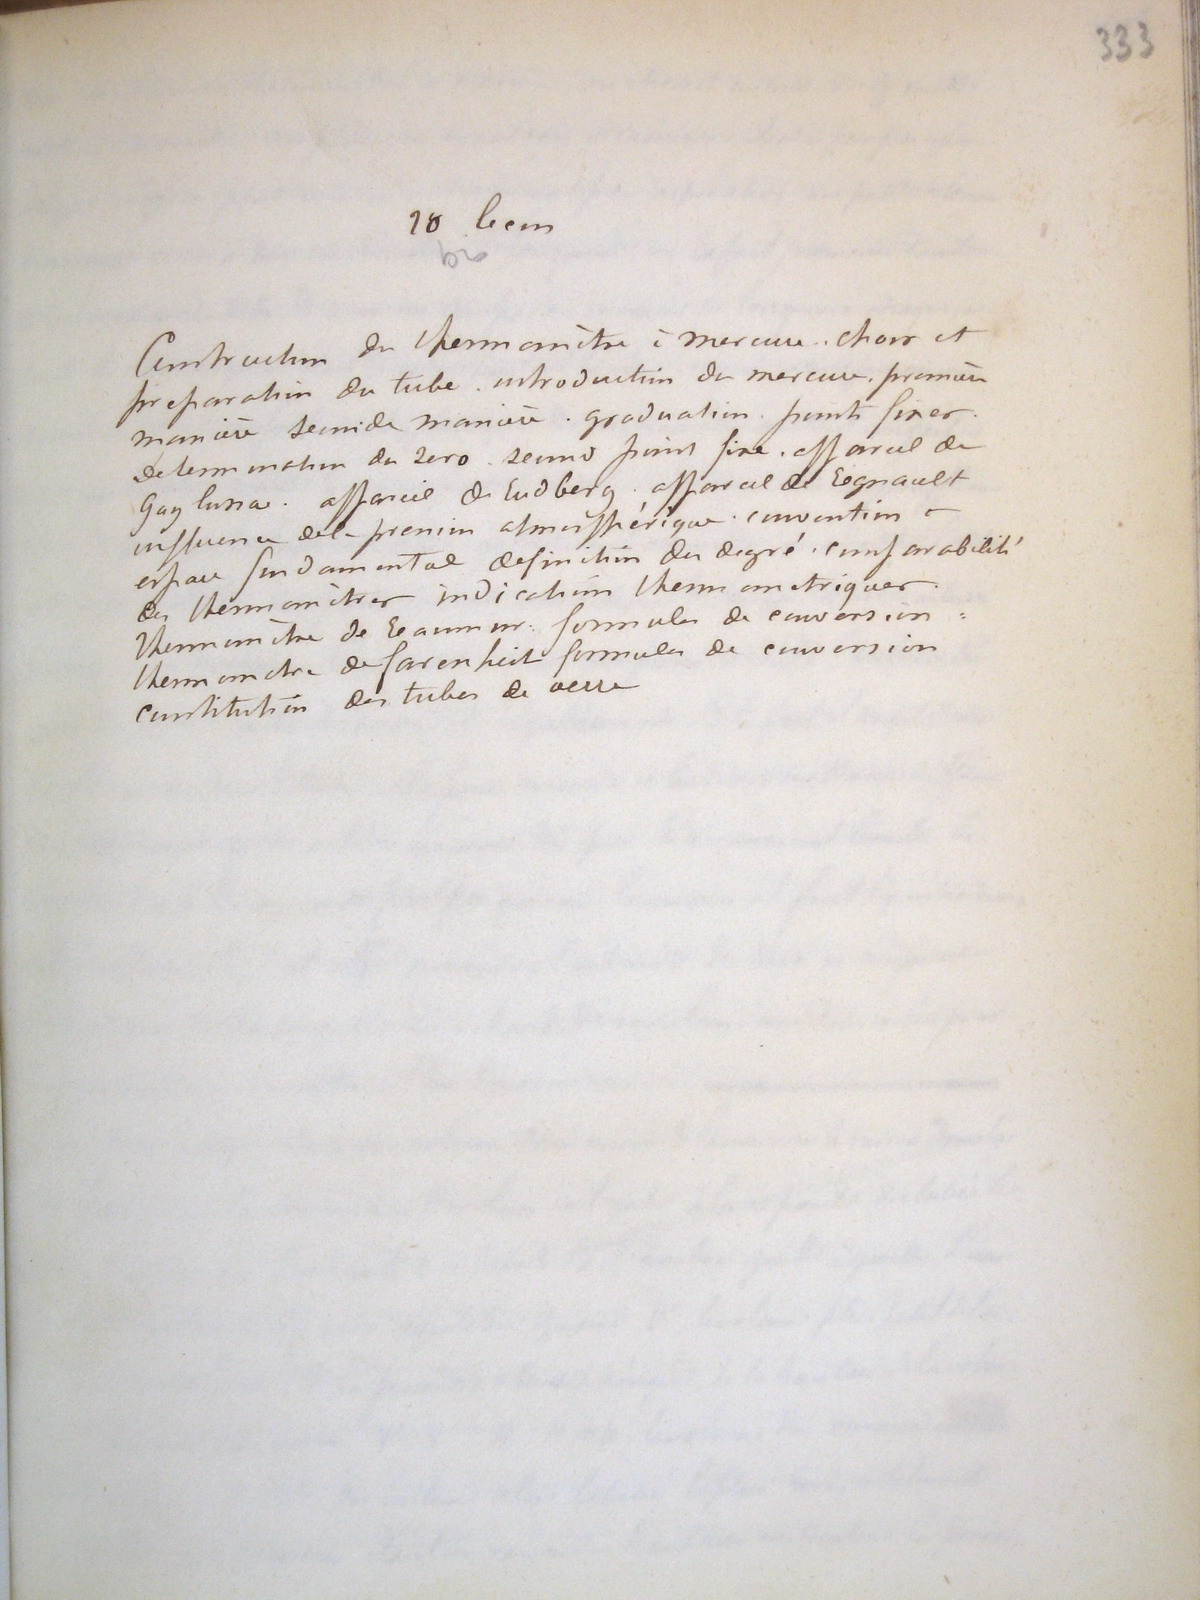 333
18 leçon
bis
Construction du thermomètre à mercure. choix et
preparation du tube. introduction du mercure. première
manière seconde manière. graduation. points fixes.
Determination du zero. second point fixe. appareil de
Gay lussac. appareil de Rudberg. appareil de Regnault
influence de la pression atmosphérique. convention
espace fondamental definition du degré. comparabilité
des thermomètres indication thermometriques.
thermomètre de Reaumur. formules de conversion.
thermometre de farenheit formules de conversion
constitution des tubes de verre